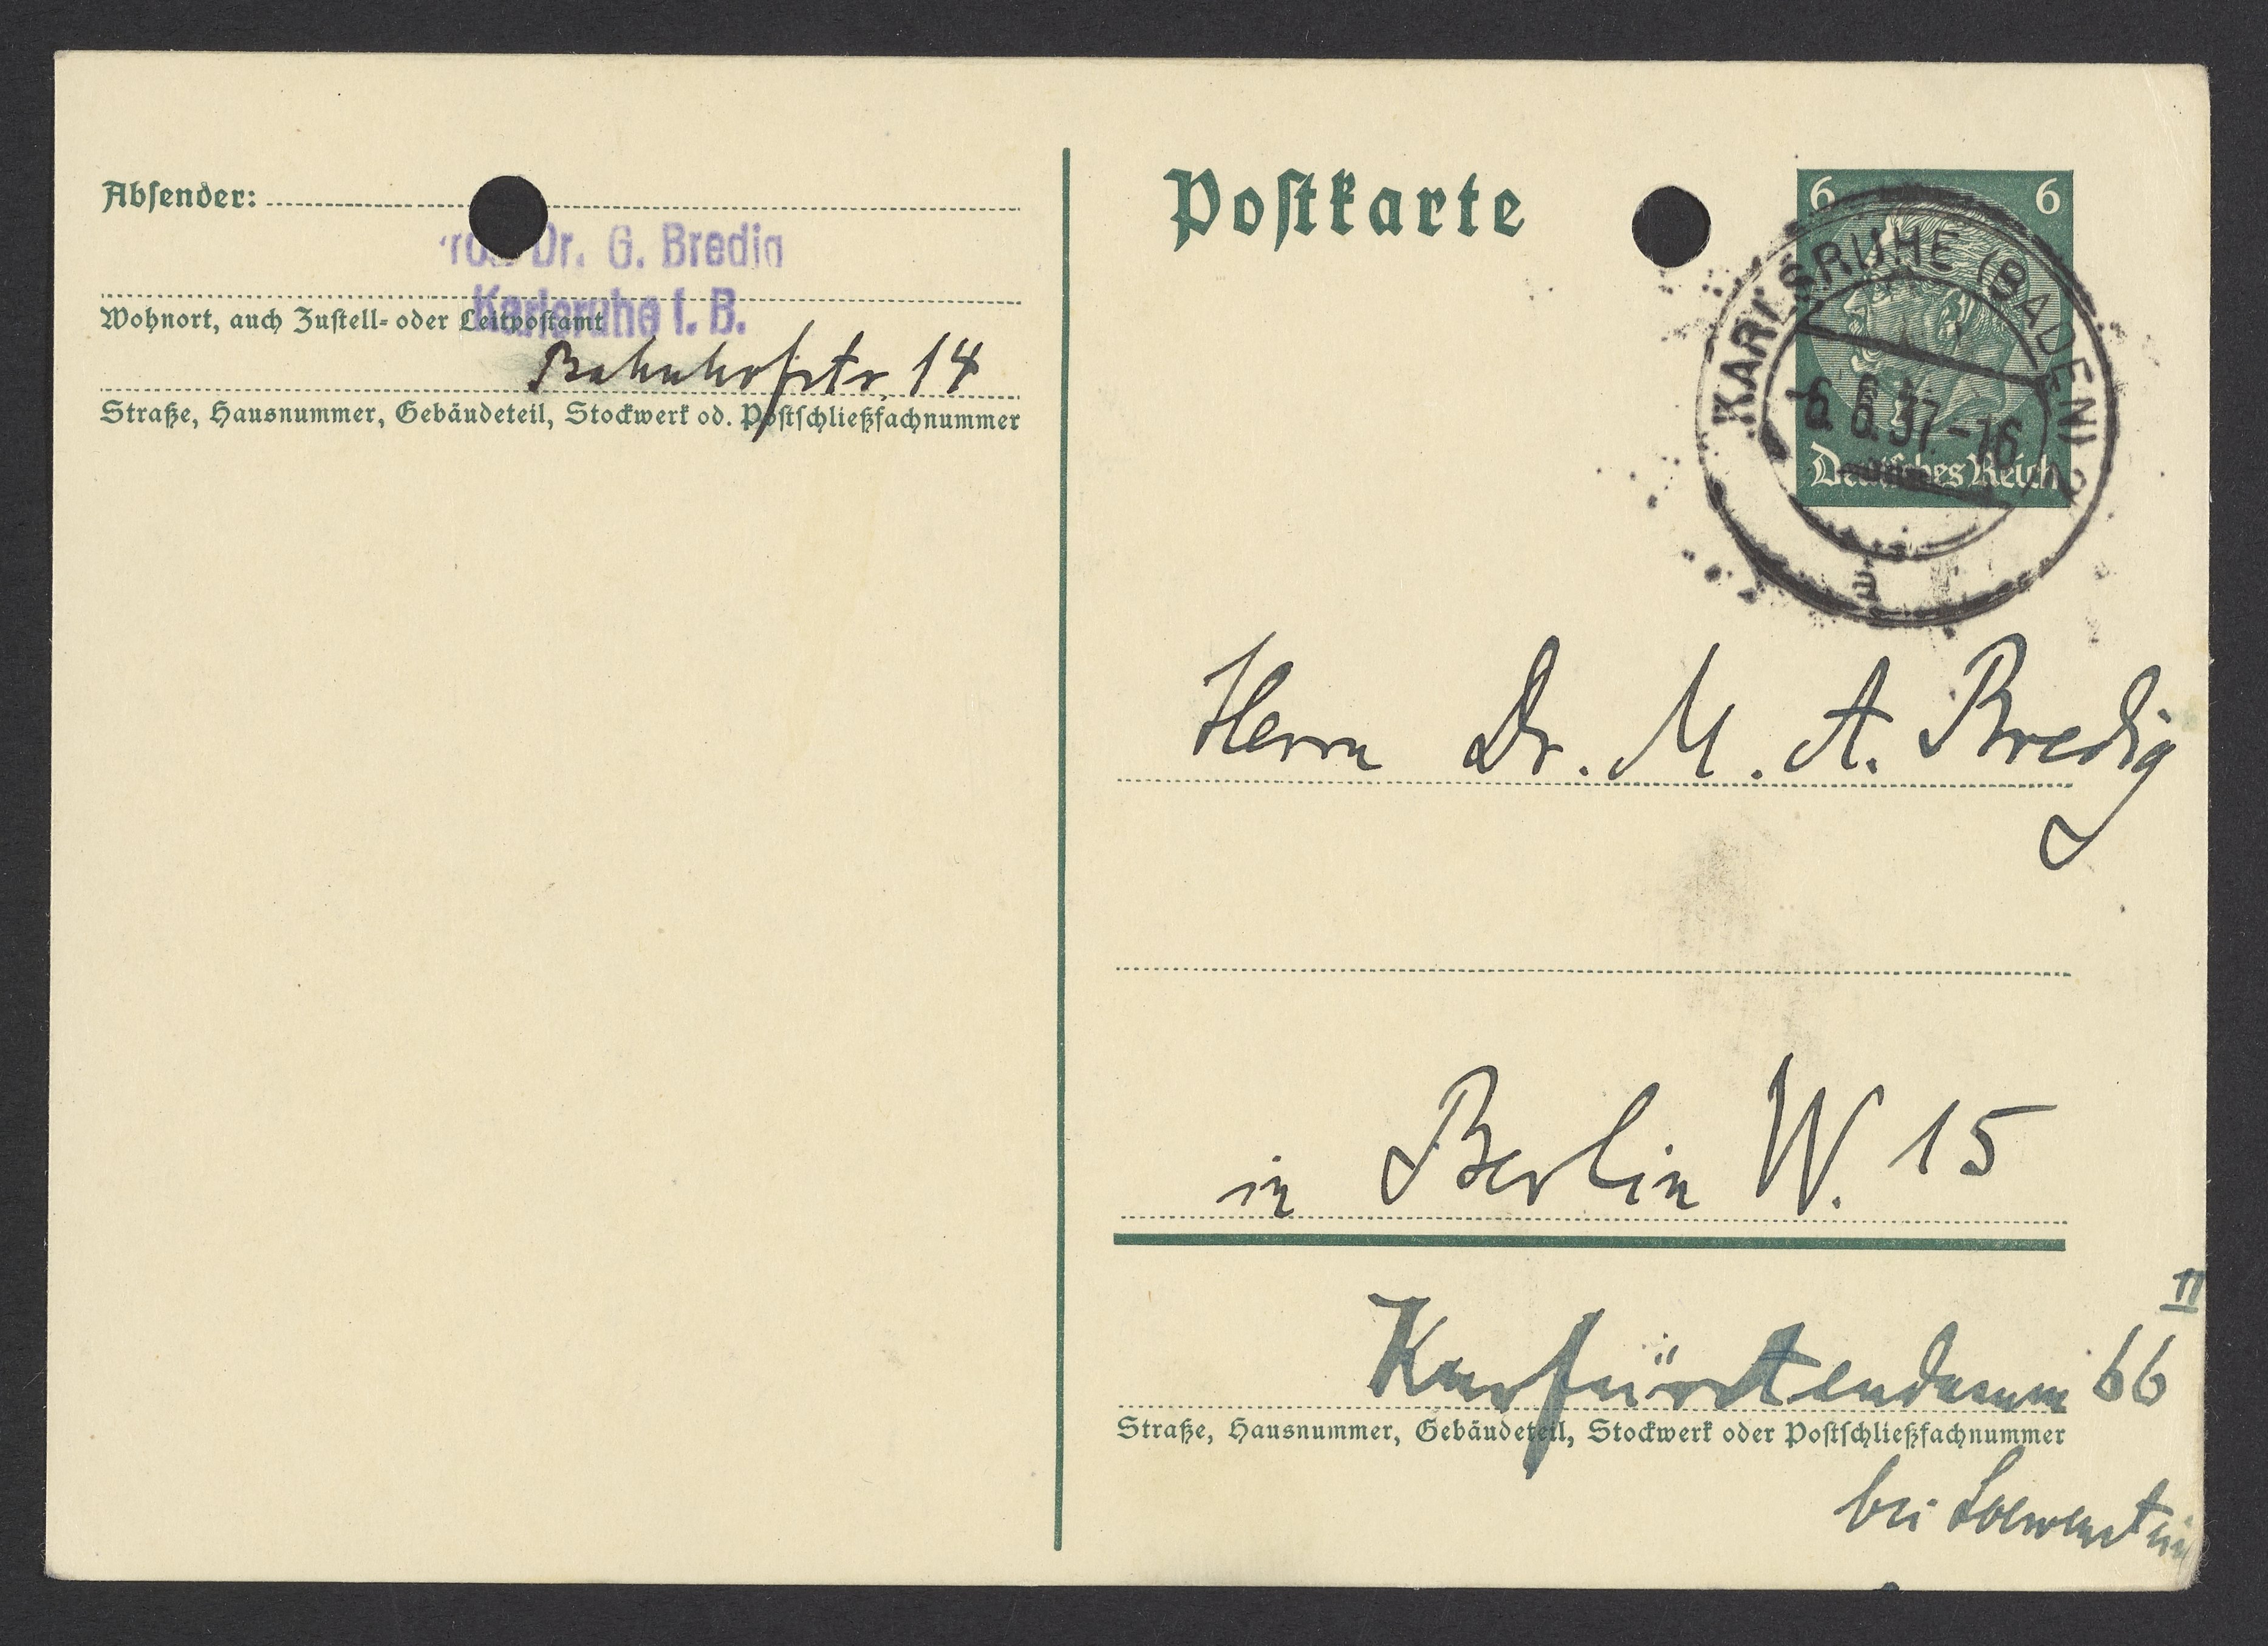 Absender:
Prof. Dr. G. Bredig
Karlsruhe i. B.
Wohnort, auch Zustell- oder Leitpostamt
Bahnhofstr. 14
Straße, Hausnummer, Gebäudeteil, Stockwerk od. Postschließfachnummer
Postkarte
6 6
Deutsches Reich
KARLSRUHE (BADEN) 2
-6.6.37.-16
a
Herrn Dr. M. A. Bredig
in Berlin W. 15
II
Kurfürstendamm 66
Straße, Hausnummer, Gebäudeteil, Stockwerk oder Postschließfachnummer
bei Loewenstein